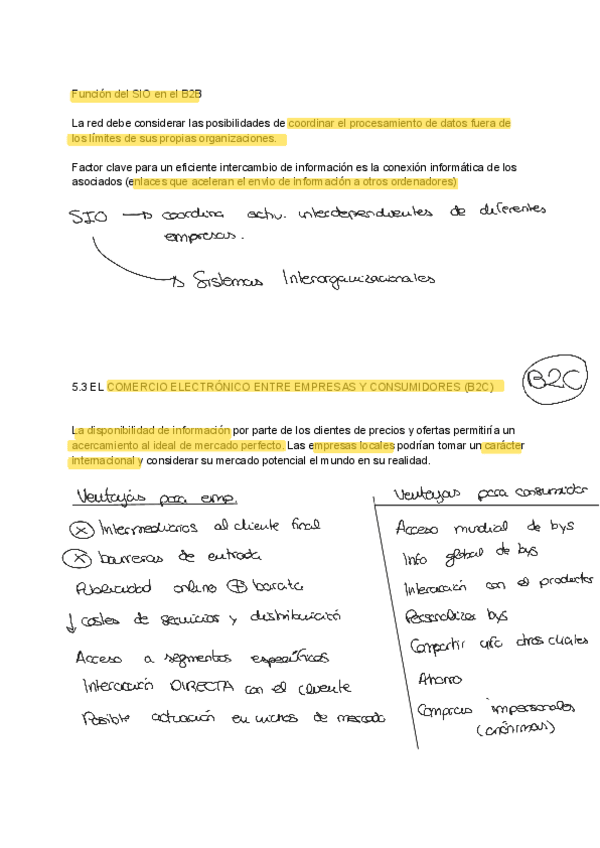 Función del SIO en el B2B
La red debe considerar las posibilidades de coordinar el procesamiento de datos fuera de
los límites de sus propias organizaciones.
Factor clave para un eficiente intercambio de información es la conexión informática de los
asociados (enlaces que aceleran el envio de información a otros ordenadores)
SIO → coordina activ. interdependientes de diferentes
empresas.
→ Sistemas Interorganizacionales
5.3 EL COMERCIO ELECTRÓNICO ENTRE EMPRESAS Y CONSUMIDORES (B2C)
B2C
La disponibilidad de información por parte de los clientes de precios y ofertas permitiría un
acercamiento al ideal de mercado perfecto. Las empresas locales podrían tomar un carácter
internacional y considerar su mercado potencial el mundo en su realidad.
Ventajas para emp.
ⓧ Intermediarios al cliente final
ⓧ barreras de entrada
Publicidad online ⊕ barata
↓ costes de servicios y distribución
Acceso a segmentos específicos
Interacción DIRECTA con el cliente
Posible actuación en nichos de mercado
Ventajas para consumidor
Acceso mundial de bys
Info global de bys
Interacción con el productor
Personalizar bys
Compartir otros
Ahorro
Compras impersonales
(anónimas)